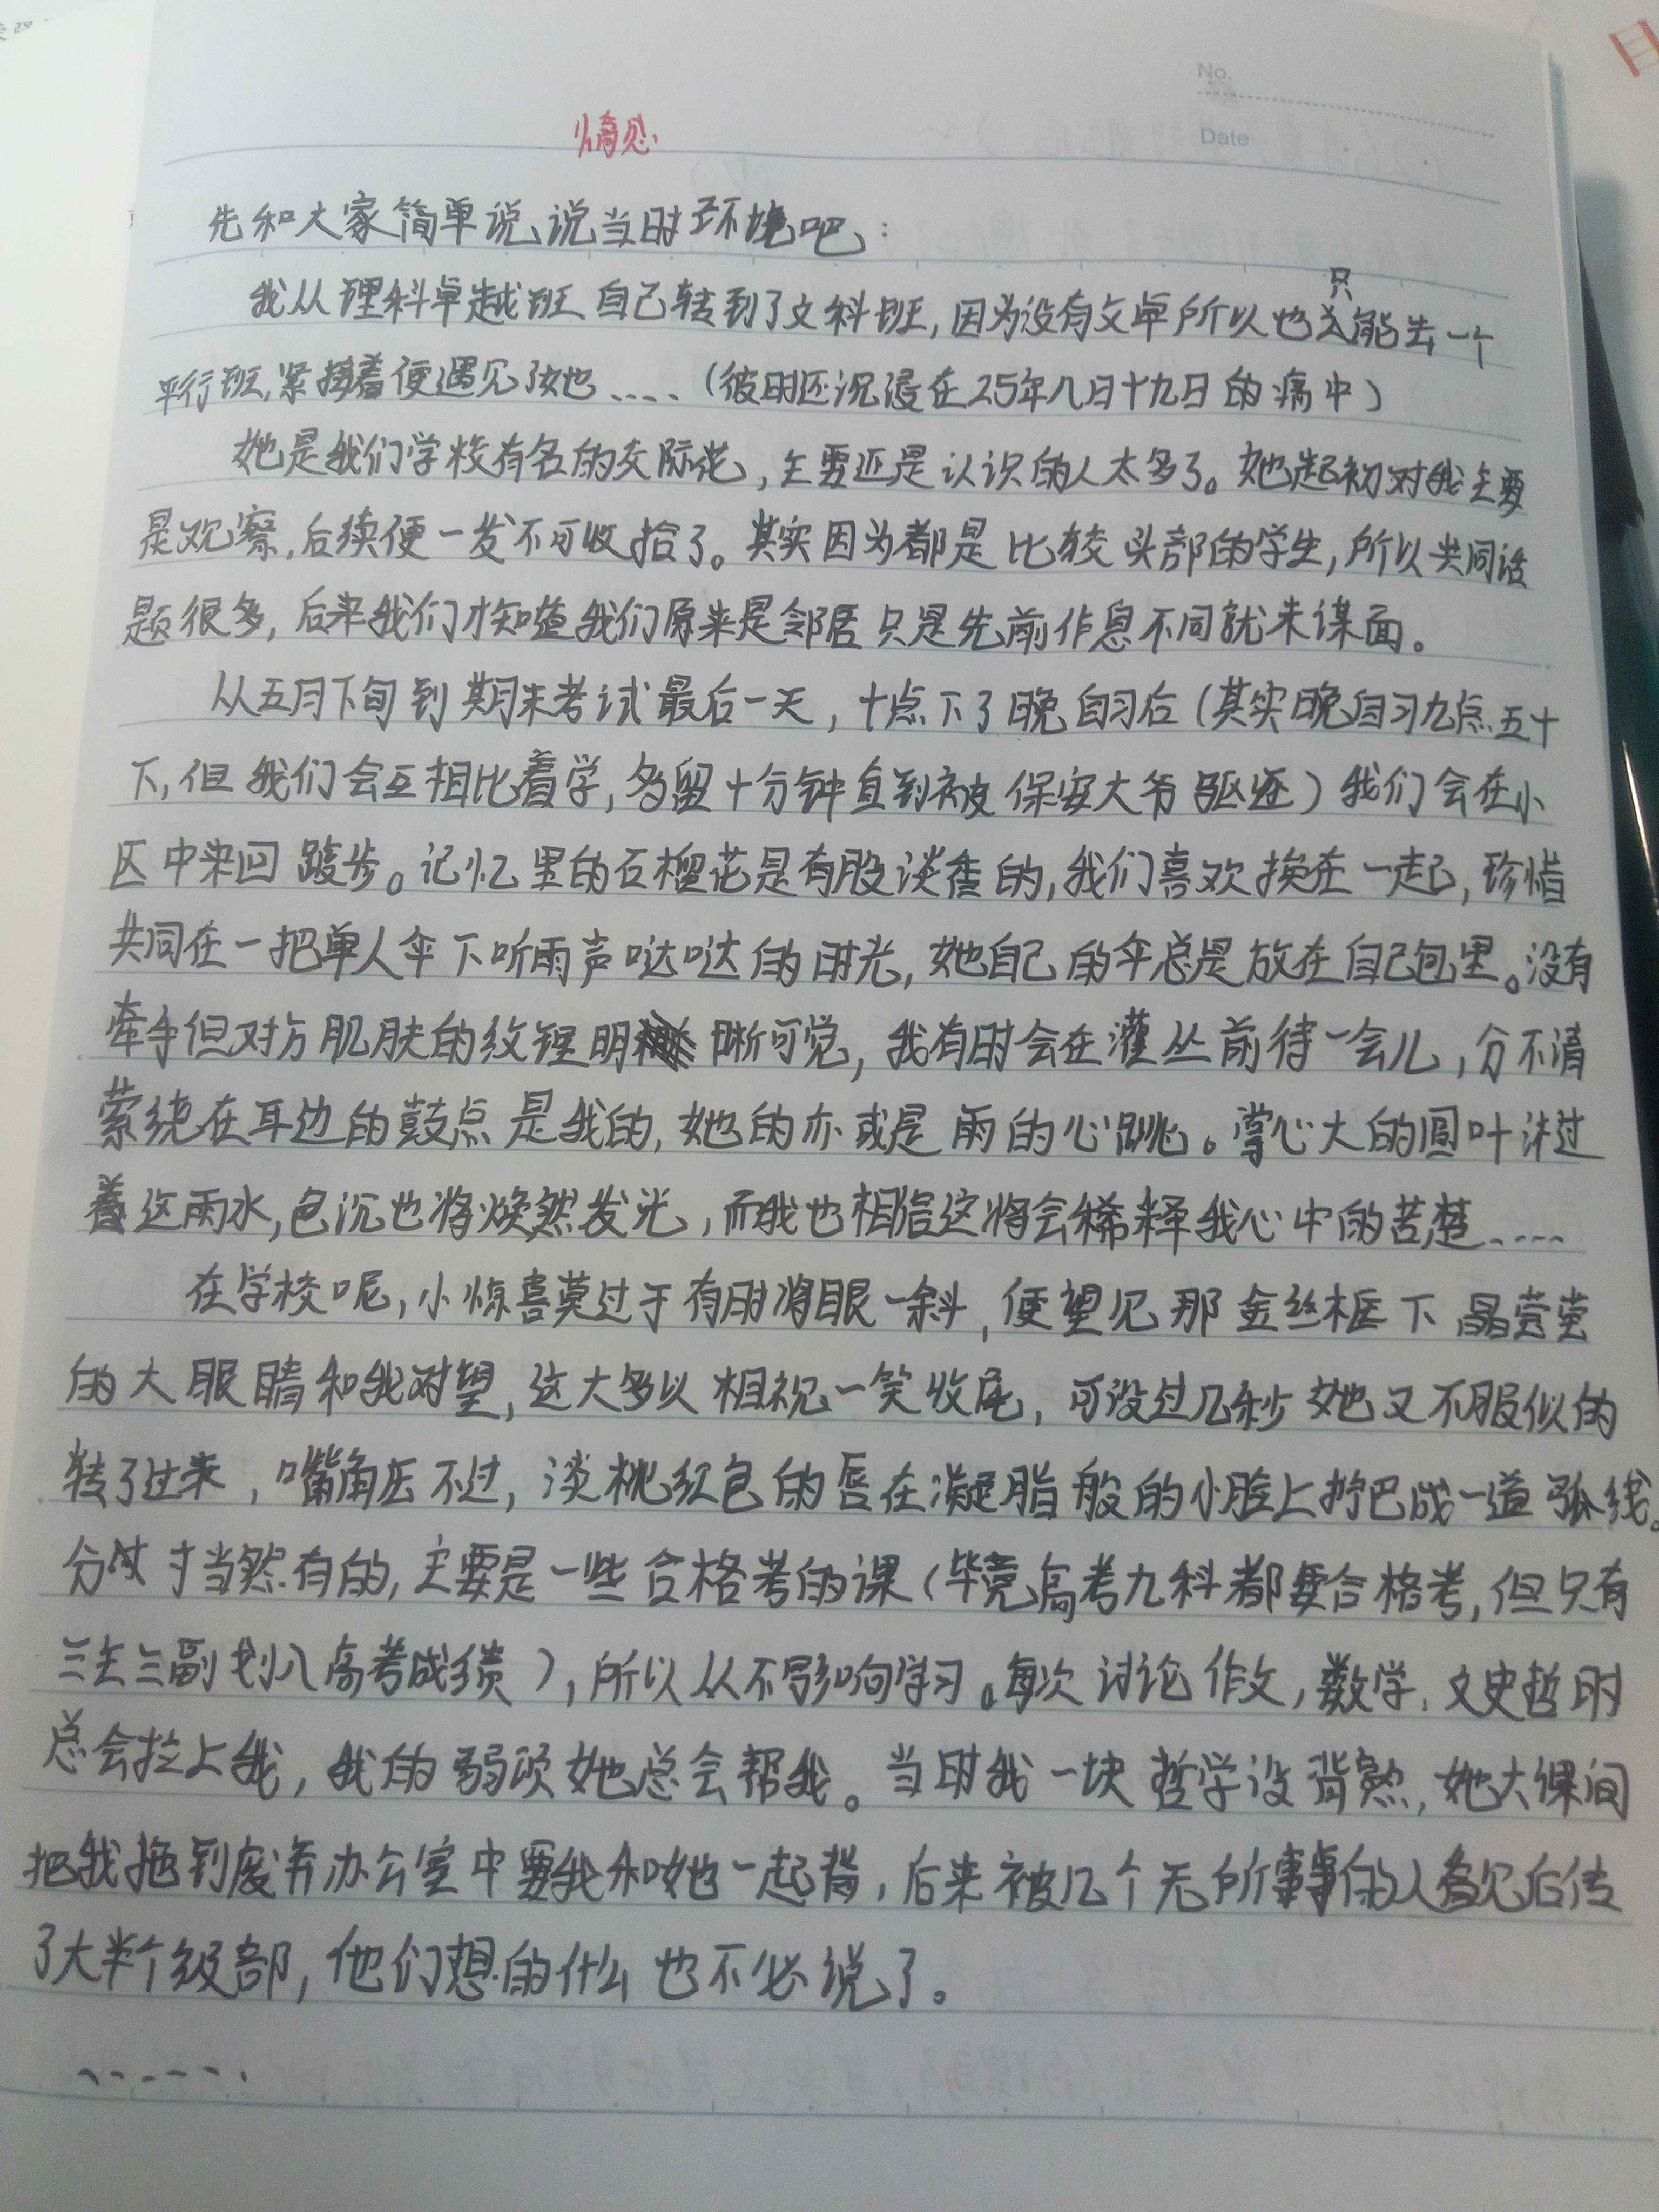 No.
Date
先和大家简单说说当时环境吧：
我从理科卓越班自己转到了文科班，因为没有文卓所以也只能去一个
平行班，紧接着便遇见了她……（彼时还沉浸在25年八月十九日的痛中）
她是我们学校有名的交际花，主要还是认识的人太多了。她起初对我主要
是观察，后续便一发不可收拾了。其实因为都是比较头部的学生，所以共同话
题很多，后来我们才知道我们原来是邻居只是先前作息不同就未谋面。
从五月下旬到期末考试最后一天，十点下了晚自习后（其实晚自习九点五十
下，但我们会互相比着学，多留十分钟直到被保安大爷驱逐）我们会在小
区中来回踱步。记忆里的石榴花是有股淡香的，我们喜欢挨在一起，珍惜
共同在一把单人伞下听雨声哒哒的时光，她自己的伞总是放在自己包里。没有
牵手但对方肌肤的纹锂明晰可觉，我有时会在灌丛前待一会儿，分不清
萦绕在耳边的鼓点是我的，她的亦或是雨的心跳。掌心大的圆叶沐过
着这雨水，色沉也将焕然发光，而我也相信这将会稀释我心中的苦楚……
在学校呢，小惊喜莫过于有时将眼一斜，便望见那金丝框下晶莹莹
的大眼睛和我对望，这大多以相视一笑收尾，可没过几秒她又不服似的
转了过来，嘴角压不过，淡桃红色的唇在凝脂般的小脸上拧巴成一道弧线。
分寸当然有的，主要是一些合格考的课（毕竟高考九科都要合格考，但只有
三主三副划入高考成绩），所以从不影响学习。每次讨论作文，数学，文史哲时
总会拉上我，我的弱项她总会帮我。当时我一块哲学没背熟，她大课间
把我拖到废弃办公室中要我和她一起背，后来被几个无所事事的人看见后传
了大半个级部，他们想的什么也不必说了。
……